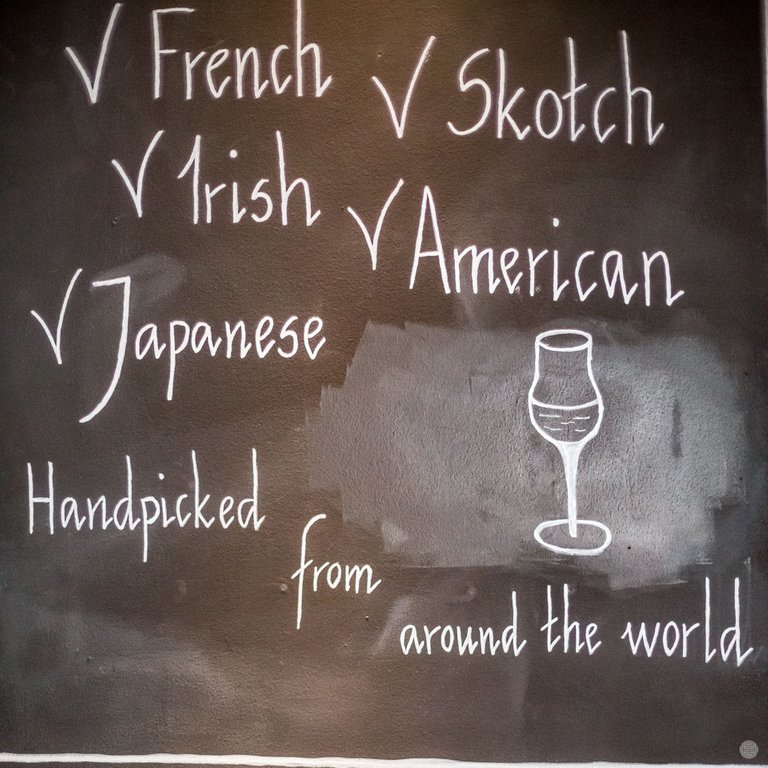 ✓ French
✓ Skotch
✓ Irish
✓ American
✓ Japanese
Handpicked
from
around the world